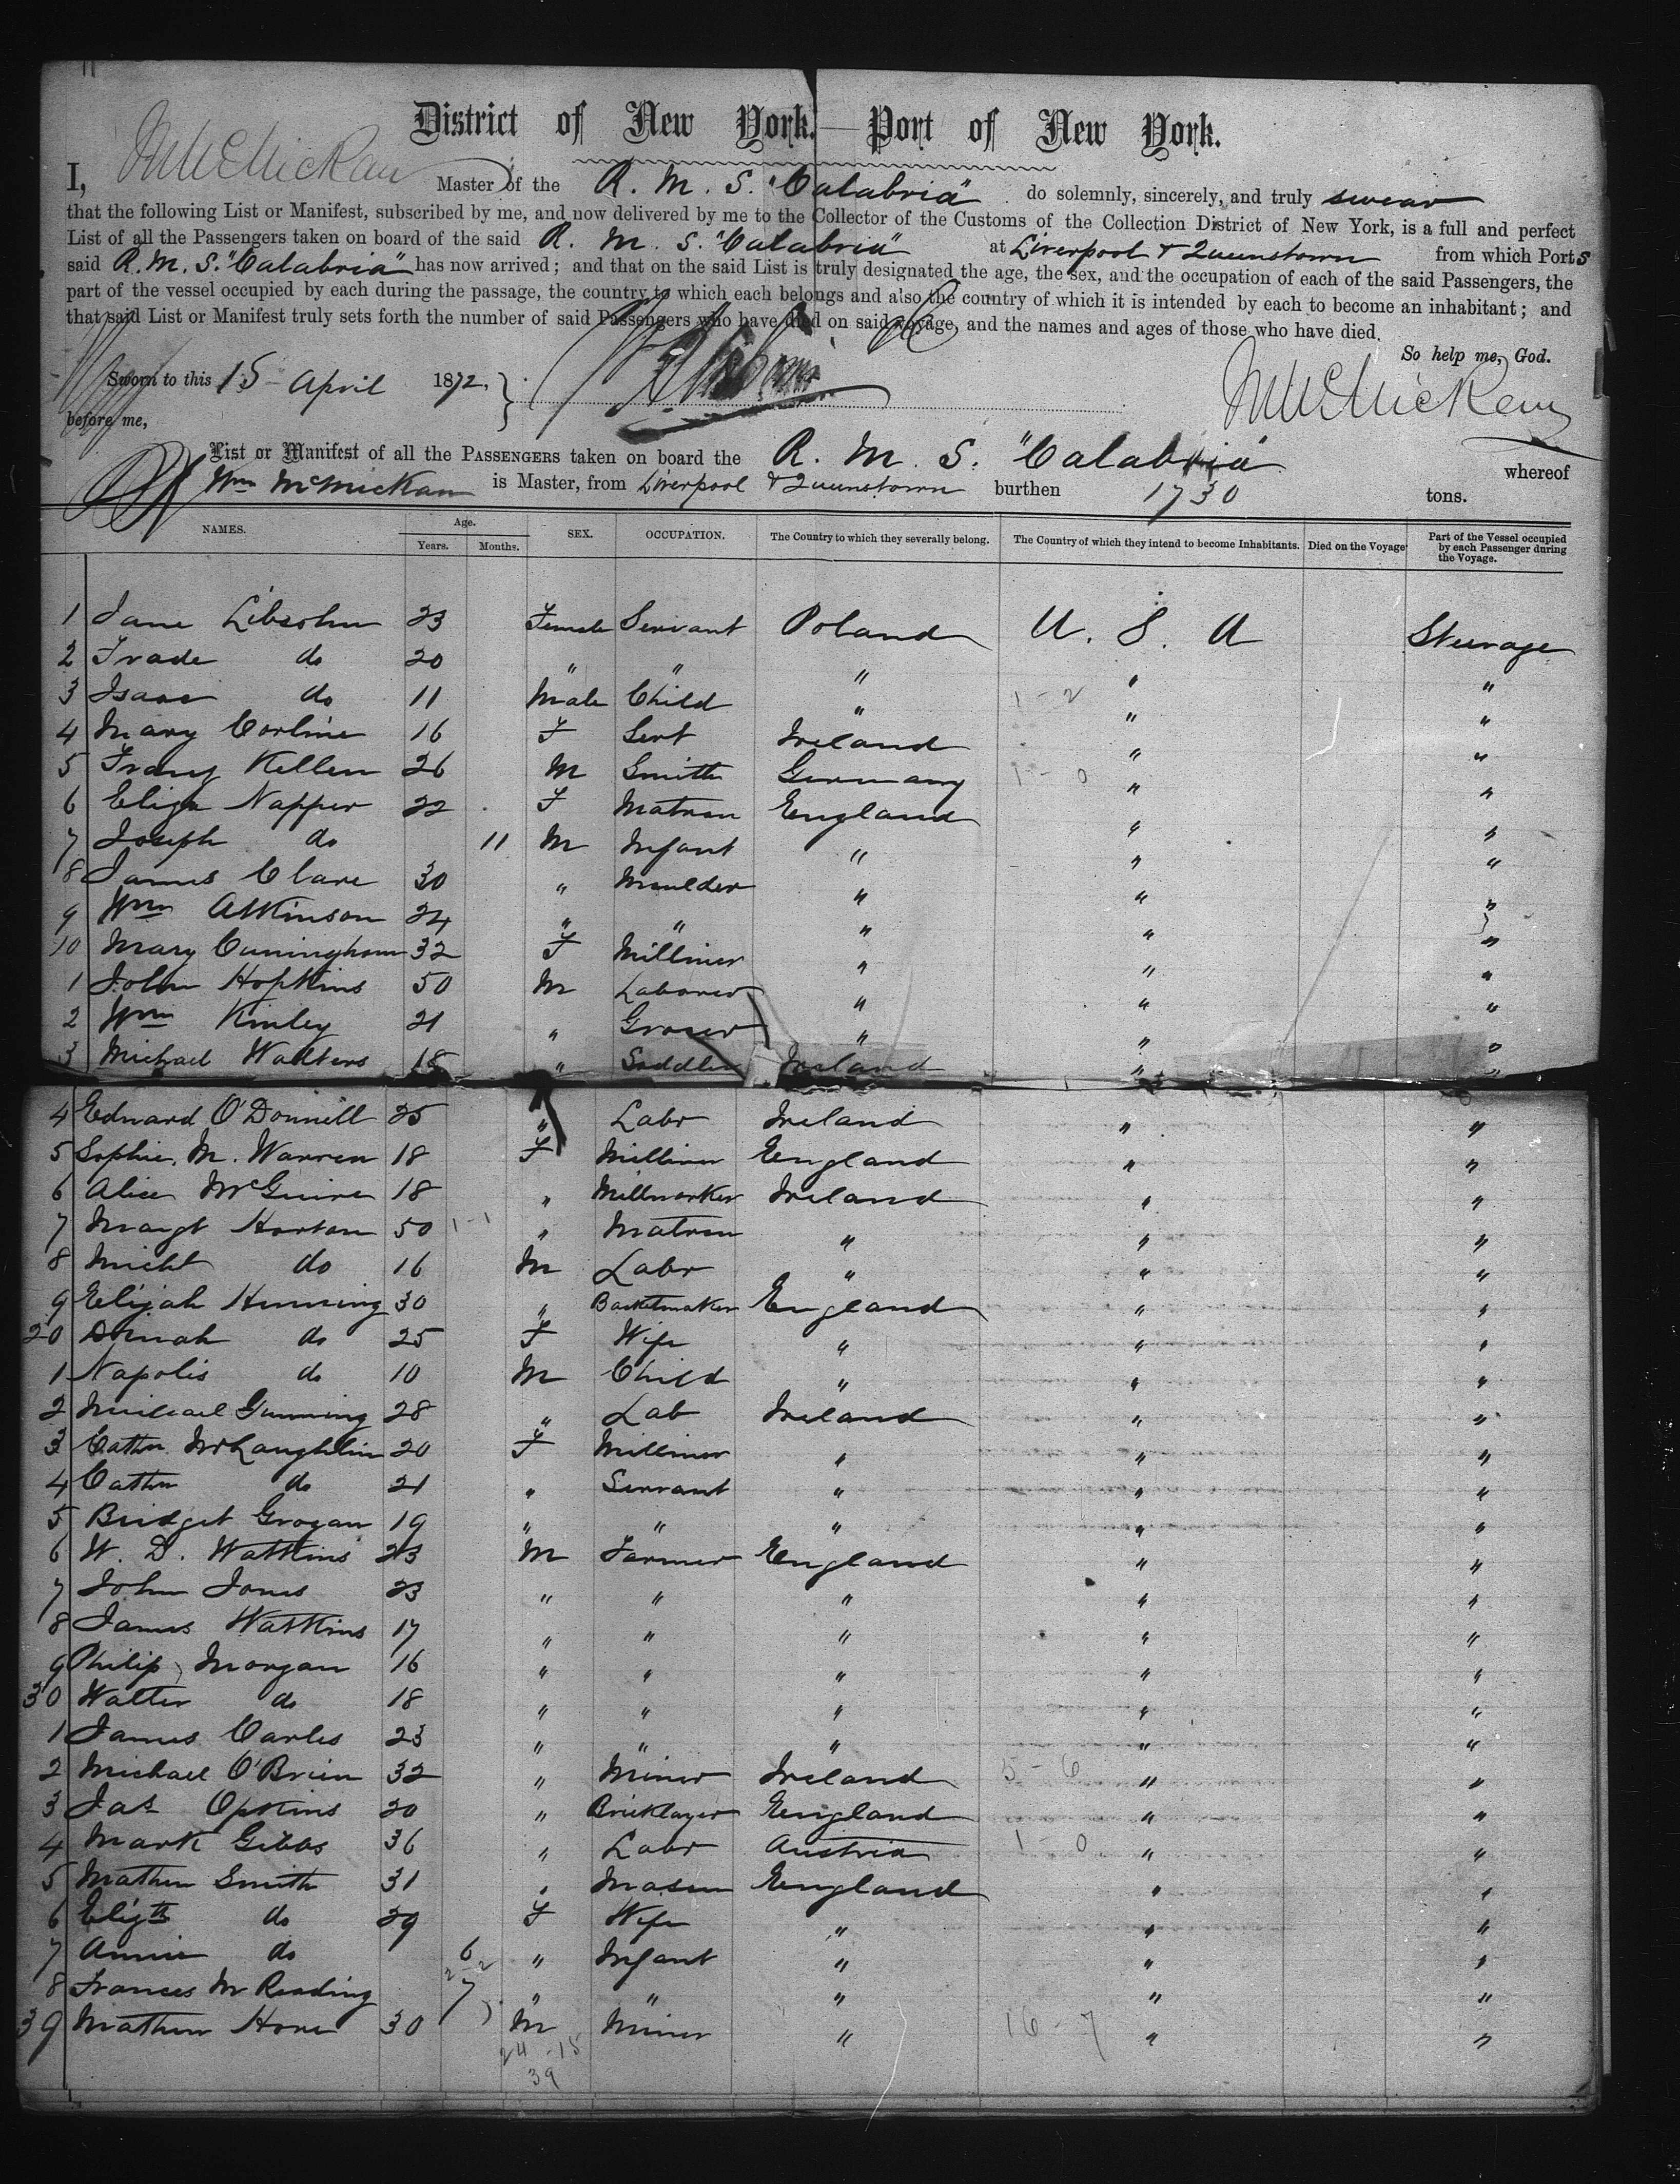 District of New York. — Port of New York.
I, Wm McMickan Master of the R. M. S. "Calabria" do solemnly, sincerely, and truly swear
that the following List or Manifest, subscribed by me, and now delivered by me to the Collector of the Customs of the Collection District of New York, is a full and perfect
List of all the Passengers taken on board of the said R. M. S. "Calabria" at Liverpool & Queenstown from which Ports
said R. M. S. "Calabria" has now arrived; and that on the said List is truly designated the age, the sex, and the occupation of each of the said Passengers, the
part of the vessel occupied by each during the passage, the country to which each belongs and also the country of which it is intended by each to become an inhabitant; and
that said List or Manifest truly sets forth the number of said Passengers who have died on said voyage, and the names and ages of those who have died.
So help me, God.
Sworn to this 15 April 1872,
before me,
Wm McMickan
List or Manifest of all the PASSENGERS taken on board the R. M. S. "Calabria" whereof
Wm McMickan is Master, from Liverpool & Queenstown burthen 1730 tons.
NAMES. Age. Years. Months. SEX. OCCUPATION. The Country to which they severally belong. The Country of which they intend to become Inhabitants. Died on the Voyage Part of the Vessel occupied by each Passenger during the Voyage.
1 Jane Libsohn 23 Female Servant Poland U. S. A Steerage
2 Frade do 20 " " " " "
3 Isaac do 11 Male Child " 1-2 " "
4 Mary Corline 16 F Sert Ireland " "
5 Frany Keller 26 M Smith Germany 1-0 " "
6 Eliza Napper 22 F Matron England " "
7 Joseph do 11 M Infant " " "
8 James Clare 30 " Moulder " " "
9 Wm Atkinson 24 " " " " "
10 Mary Cuningham 32 F Milliner " " "
1 John Hopkins 50 M Laborer " " "
2 Wm Kinley 21 " Grocer " " "
3 Michael Walters 18 " Saddler Ireland " "
4 Edward O'Donnell 25 " Labr Ireland " "
5 Sophie. M. Warren 18 F Milliner England " "
6 Alice McGuire 18 " Millworker Ireland " "
7 Margt Horton 50 1-1 " Matron " " "
8 Michl do 16 M Labr " " "
9 Elijah Henning 30 " Basketmaker England " "
20 Dinah do 25 F Wife " " "
1 Napolis do 10 M Child " " "
2 Michael Gunning 28 " Lab Ireland " "
3 Cathn McLaughlin 20 F Milliner " " "
4 Cathn do 21 " Servant " " "
5 Bridget Grogan 19 " " " " "
6 W. D. Watkins 23 M Farmer England " "
7 John Jones 23 " " " " "
8 James Watkins 17 " " " " "
9 Philip Morgan 16 " " " " "
30 Walter do 18 " " " " "
1 James Carles 23 " " " " "
2 Michael O'Brien 32 " Miner Ireland 5-6 " "
3 Jas Opkins 20 " Bricklayer England " "
4 Mark Gibbs 36 " Labr Austria 1-0 " "
5 Mathew Smith 31 " Mason England " "
6 Elizth do 29 F Wife " " "
7 Annie do 6 " Infant " " "
8 Frances M Reading 7 " " " " "
39 Mathew Hore 30 M Miner " 16-7 " "
24-15
39